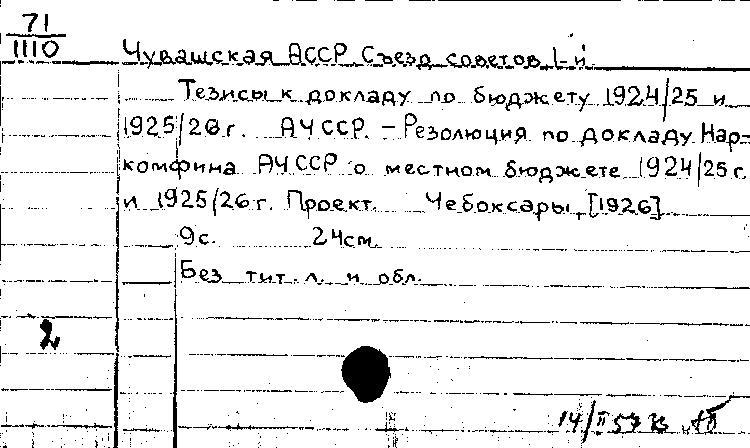 71
1110
Чувашская АССР Съезд советов I-й
Тезисы к докладу по бюджету 1924/25 и
1925/26 г. АЧССР. – Резолюция по докладу Нар-
комфина АЧССР о местном бюджете 1924/25 г.
и 1925/26 г. Проект. Чебоксары, [1926]
9 с. 24 см.
Без тит. л. и обл.
2
14/II 57